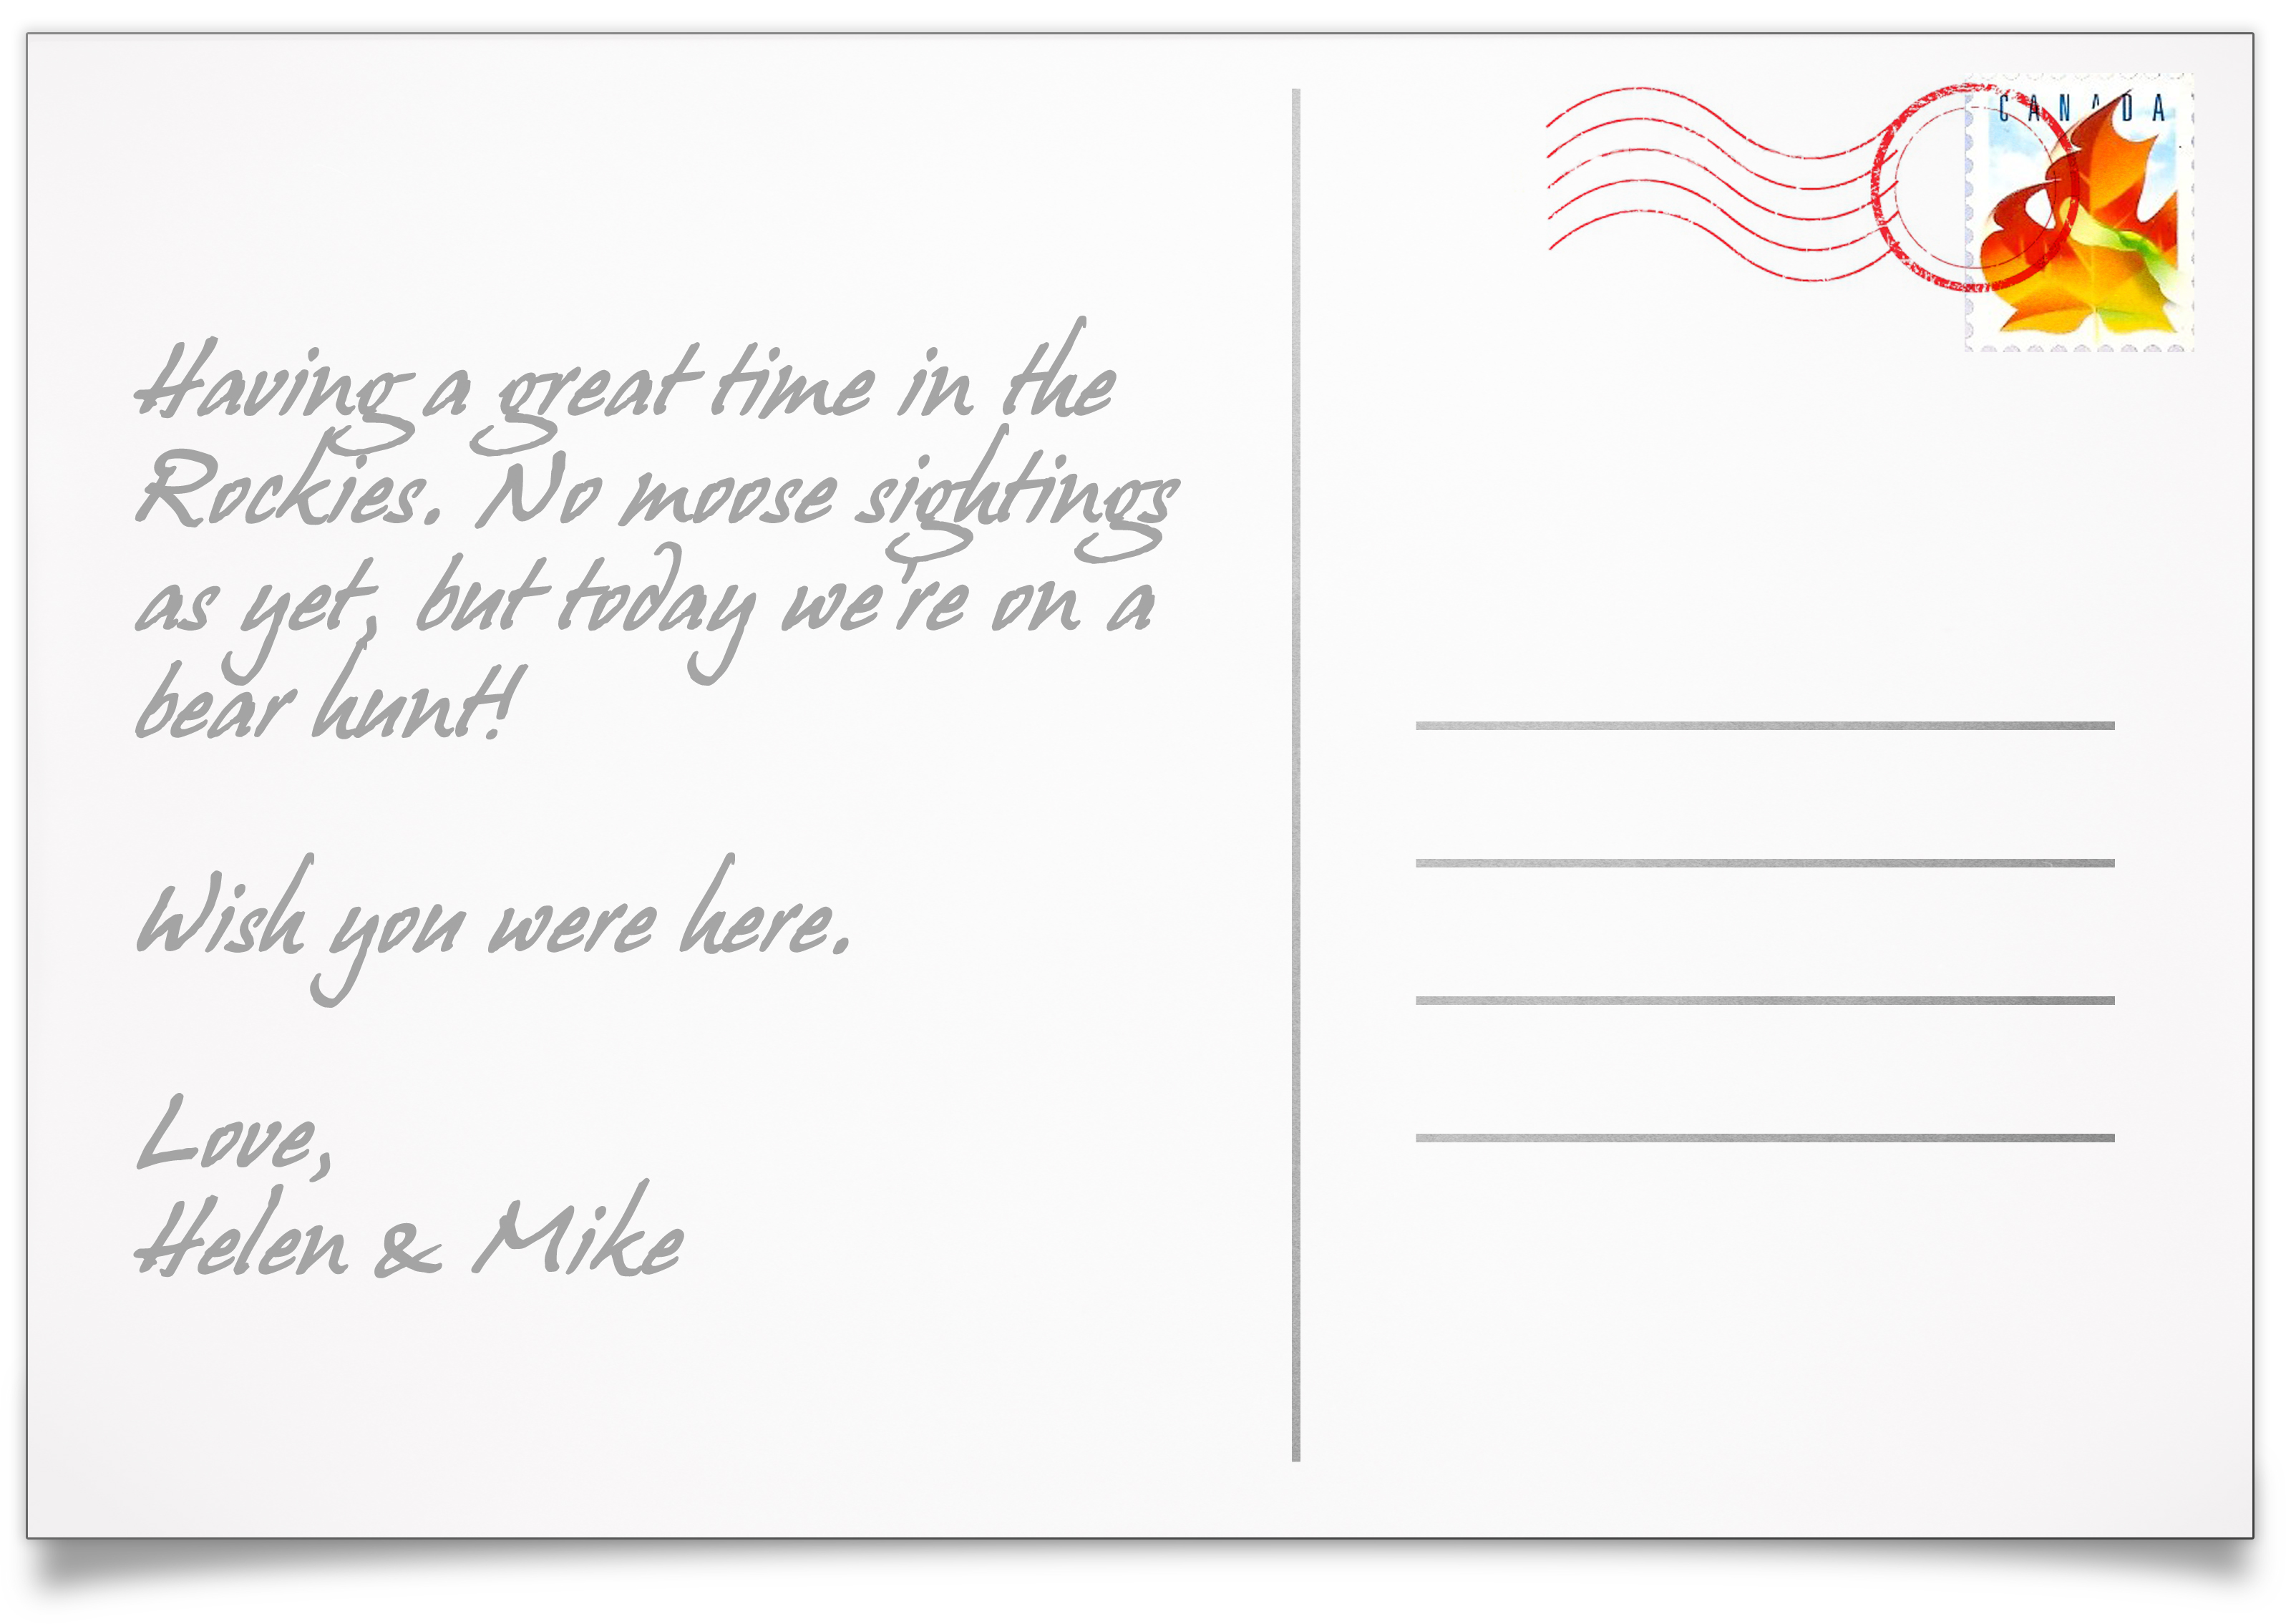 Having a great time in the
Rockies. No moose sightings
as yet, but today we're on a
bear hunt!
Wish you were here.
Love,
Helen & Mike
CANADA